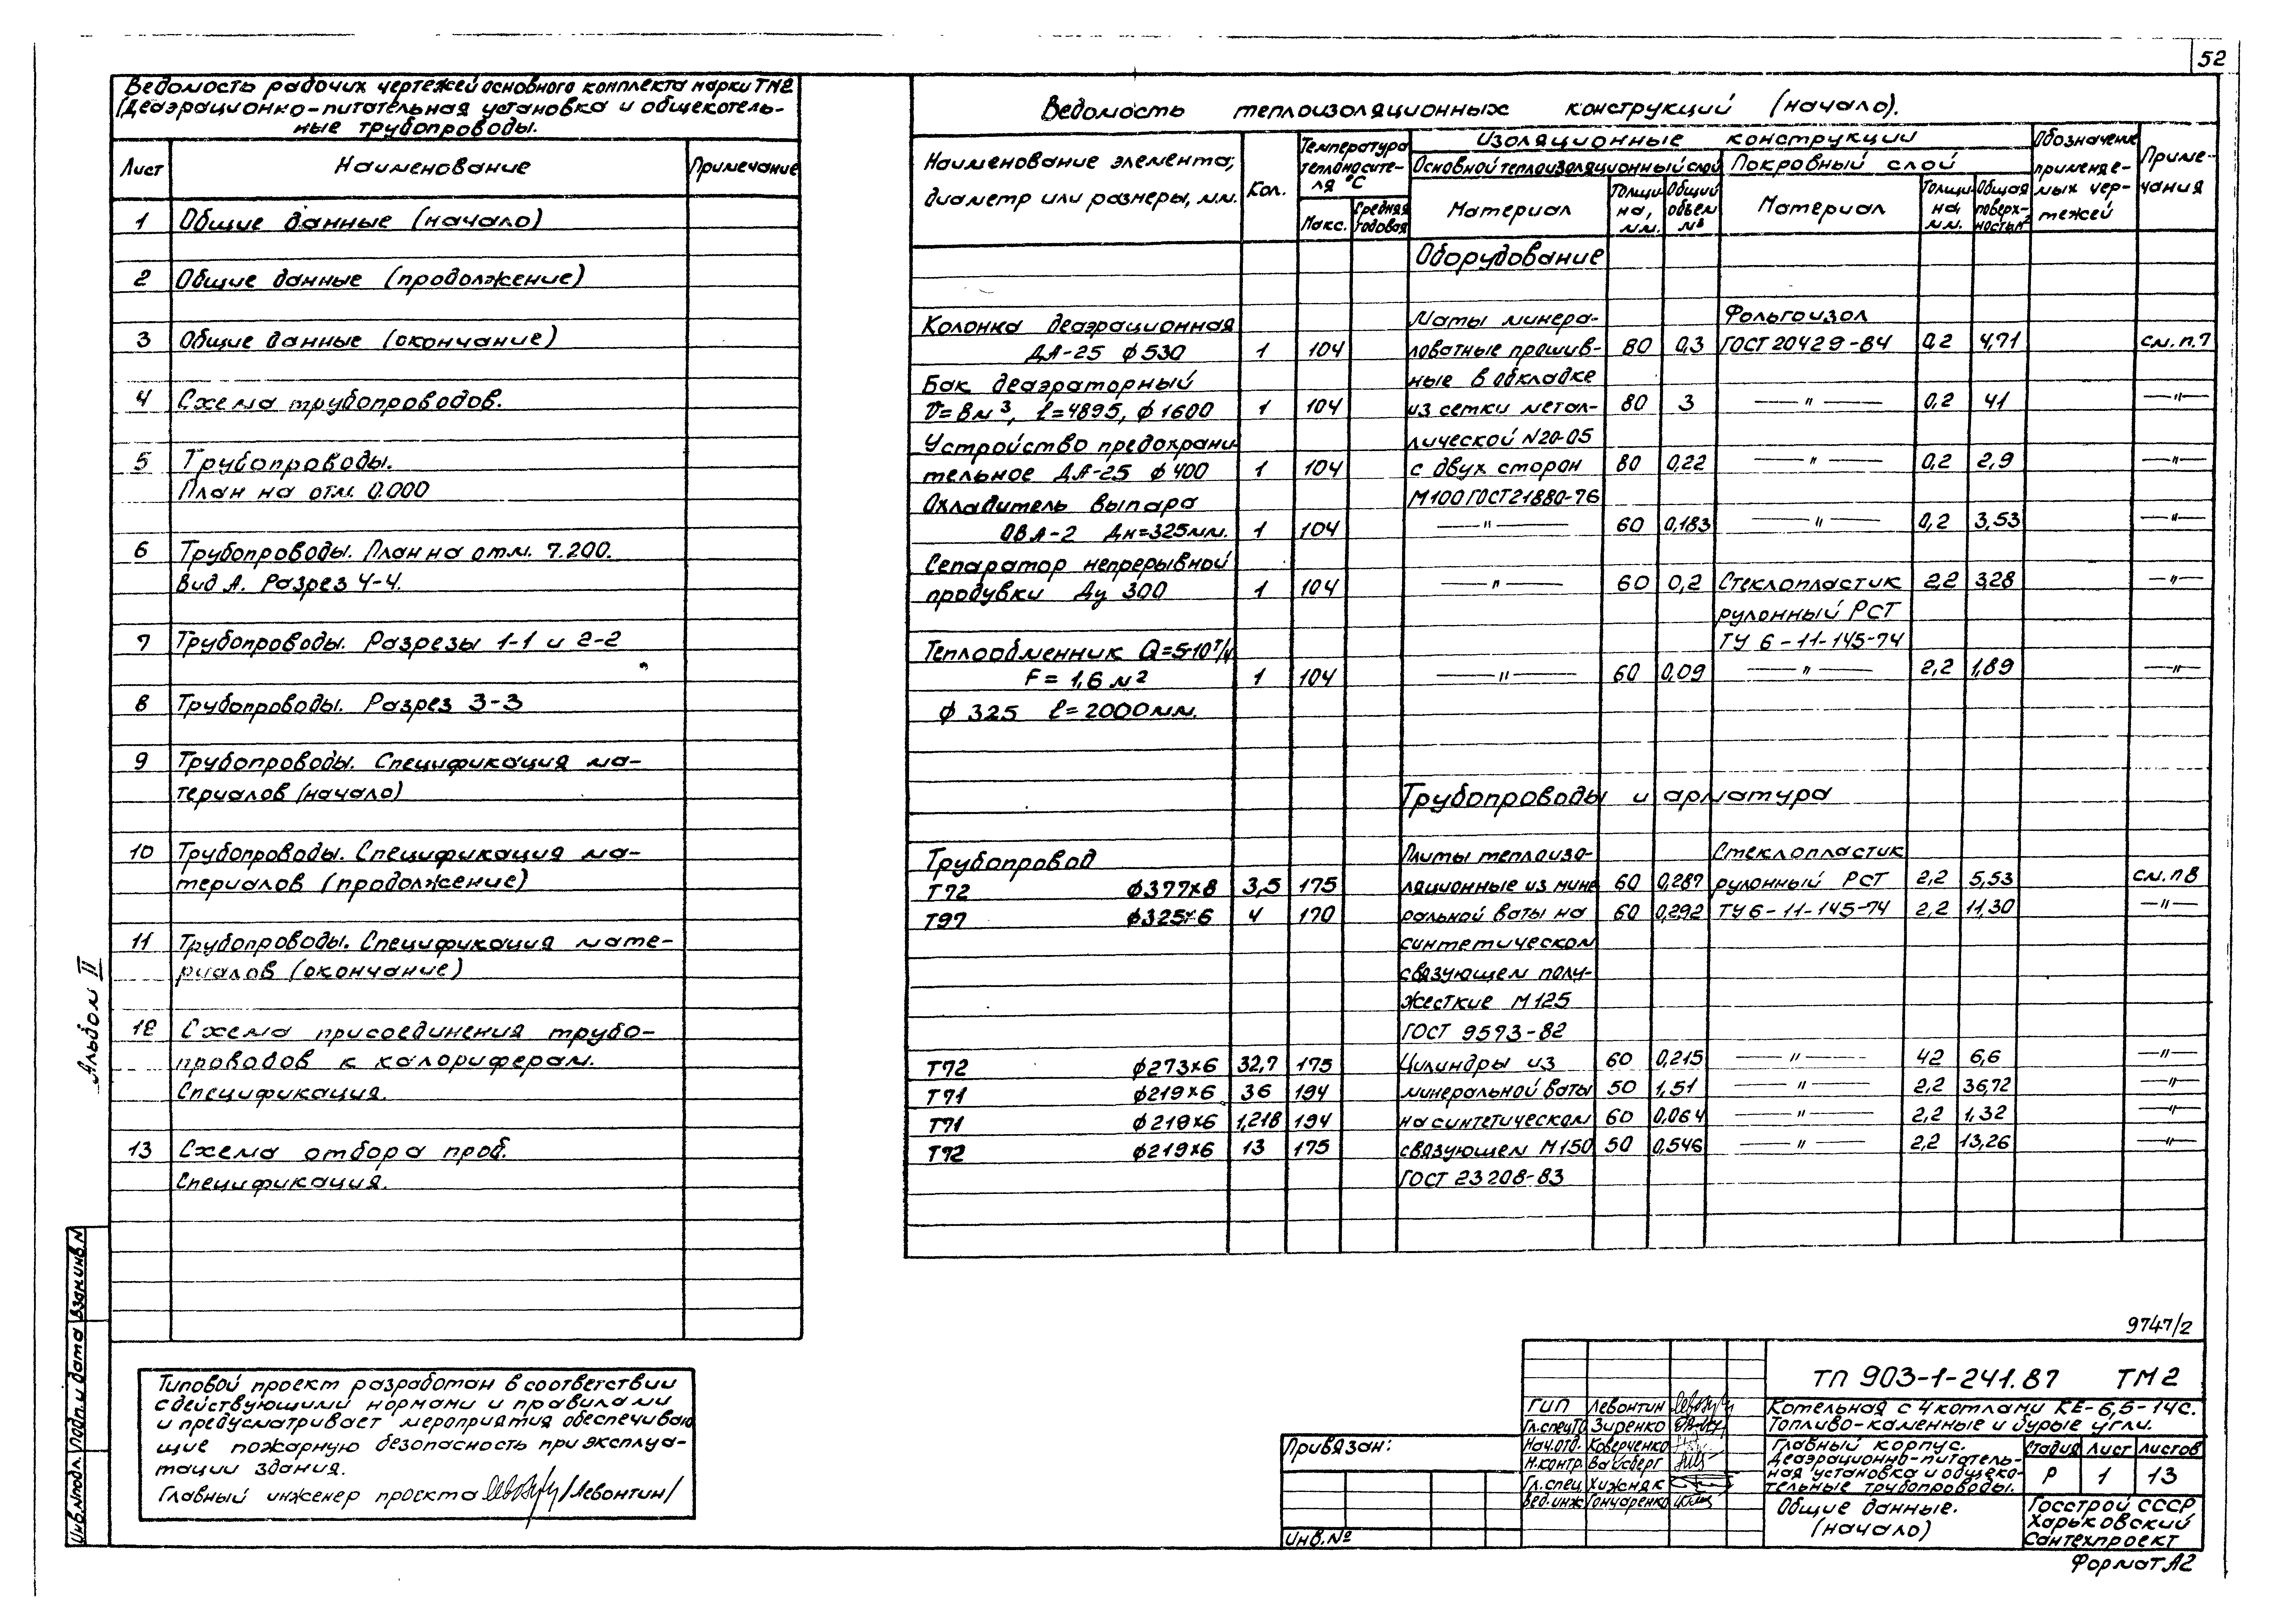 52
Ведомость рабочих чертежей основного комплекта марки ТМ2
(Деаэрационно-питательная установка и общекотель-
ные трубопроводы.
Лист Наименование Примечание
1 Общие данные (начало)
2 Общие данные (продолжение)
3 Общие данные (окончание)
4 Схема трубопроводов.
5 Трубопроводы.
План на отм. 0.000
6 Трубопроводы. План на отм. 7.200.
Вид А. Разрез 4-4.
7 Трубопроводы. Разрезы 1-1 и 2-2
8 Трубопроводы. Разрез 3-3
9 Трубопроводы. Спецификация ма-
териалов (начало)
10 Трубопроводы. Спецификация ма-
териалов (продолжение)
11 Трубопроводы. Спецификация мате-
риалов (окончание)
12 Схема присоединения трубо-
проводов к калориферам.
Спецификация.
13 Схема отбора проб.
Спецификация.
Ведомость теплоизоляционных конструкций (начало).
Наименование элемента, диаметр или размеры, мм.
Кол.
Температура теплоносите-ля °С
Макс. Средняя годовая
Изоляционные конструкции
Основной теплоизоляционный слой Покровный слой
Материал Толщи-на, мм. Общий объем м³ Материал Толщи-на, мм. Общая поверх-ность м²
Обозначение применяе-мых чер-тежей
Приме-чания
Оборудование
Колонка деаэрационная Маты минера- Фольгоизол
ДА-25 ф530 1 104 ловатные прошив- 80 0,3 ГОСТ 20429-84 0,2 4,71 см. п.7
Бак деаэраторный ные в обкладке
V=8м³, ℓ=4895, ф1600 1 104 из сетки метал- 80 3 —"— 0,2 41 —"—
Устройство предохрани- лической N20-05
тельное ДА-25 ф400 1 104 с двух сторон 80 0,22 —"— 0,2 2,9 —"—
Охладитель выпара М100 ГОСТ21880-76
ОВА-2 Дн=325мм. 1 104 —"— 60 0,183 —"— 0,2 3,53 —"—
Сепаратор непрерывной
продувки Ду 300 1 104 —"— 60 0,2 Стеклопластик 2,2 3,28 —"—
рулонный РСТ
Теплообменник Q=5·10т/ч ТУ 6-11-145-74
F=1,6 м² 1 104 —"— 60 0,09 —"— 2,2 1,89 —"—
ф 325 ℓ=2000мм.
Трубопроводы и арматура
Трубопровод Плиты теплоизо- Стеклопластик
Т72 ф377х8 3,5 175 ляционные из мине 60 0,287 рулонный РСТ 2,2 5,53 см. п8
Т97 ф325х6 4 170 ральной ваты на 60 0,292 ТУ6-11-145-74 2,2 11,30 —"—
синтетическом
связующем полу-
жесткие М125
ГОСТ 9573-82
Т72 ф273х6 32,7 175 Цилиндры из 60 0,215 —"— 42 6,6 —"—
Т71 ф219х6 36 194 минеральной ваты 50 1,51 —"— 2,2 36,72 —"—
Т71 ф219х6 1,218 194 на синтетическом 60 0,064 —"— 2,2 1,32 —"—
Т72 ф219х6 13 175 связующем М150 50 0,546 —"— 2,2 13,26 —"—
ГОСТ 23208-83
Альбом II
Инв.Nподл. Подп. и дата Взам.инв.N
Типовой проект разработан в соответствии
с действующими нормами и правилами
и предусматривает мероприятия обеспечиваю
щие пожарную безопасность при эксплуа-
тации здания.
Главный инженер проекта /Левонтин/
9747/2
Привязан:
Инв.№
ГИП Левонтин
Гл.спец.ТО Зиренко
Нач.отд. Коверченко
Н.контр. Вайсберг
Гл.спец. Хижняк
Вед.инж. Гончаренко
ТП 903-1-241.87 ТМ2
Котельная с 4 котлами КЕ-6,5-14С.
Топливо-каменные и бурые угли.
Главный корпус.
Деаэрационно-питатель-
ная установка и общеко-
тельные трубопроводы.
Стадия Лист Листов
Р 1 13
Общие данные.
(начало)
Госстрой СССР
Харьковский
Сантехпроект
Формат А2